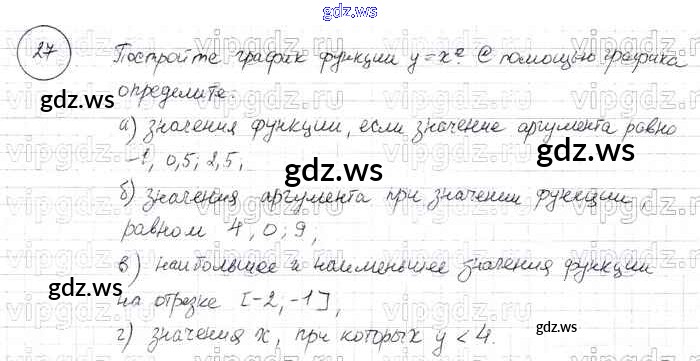 gdz.ws
27 Постройте график функции y = x². С помощью графика
определите:
gdz.ws
а) значения функции, если значение аргумента равно
-1, 0,5; 2,5;
gdz.ws
б) значения аргумента при значении функции,
равном 4, 0; 9;
в) наибольшее и наименьшее значения функции
gdz.ws
на отрезке [-2; -1];
г) значения x, при которых y < 4.
gdz.ws